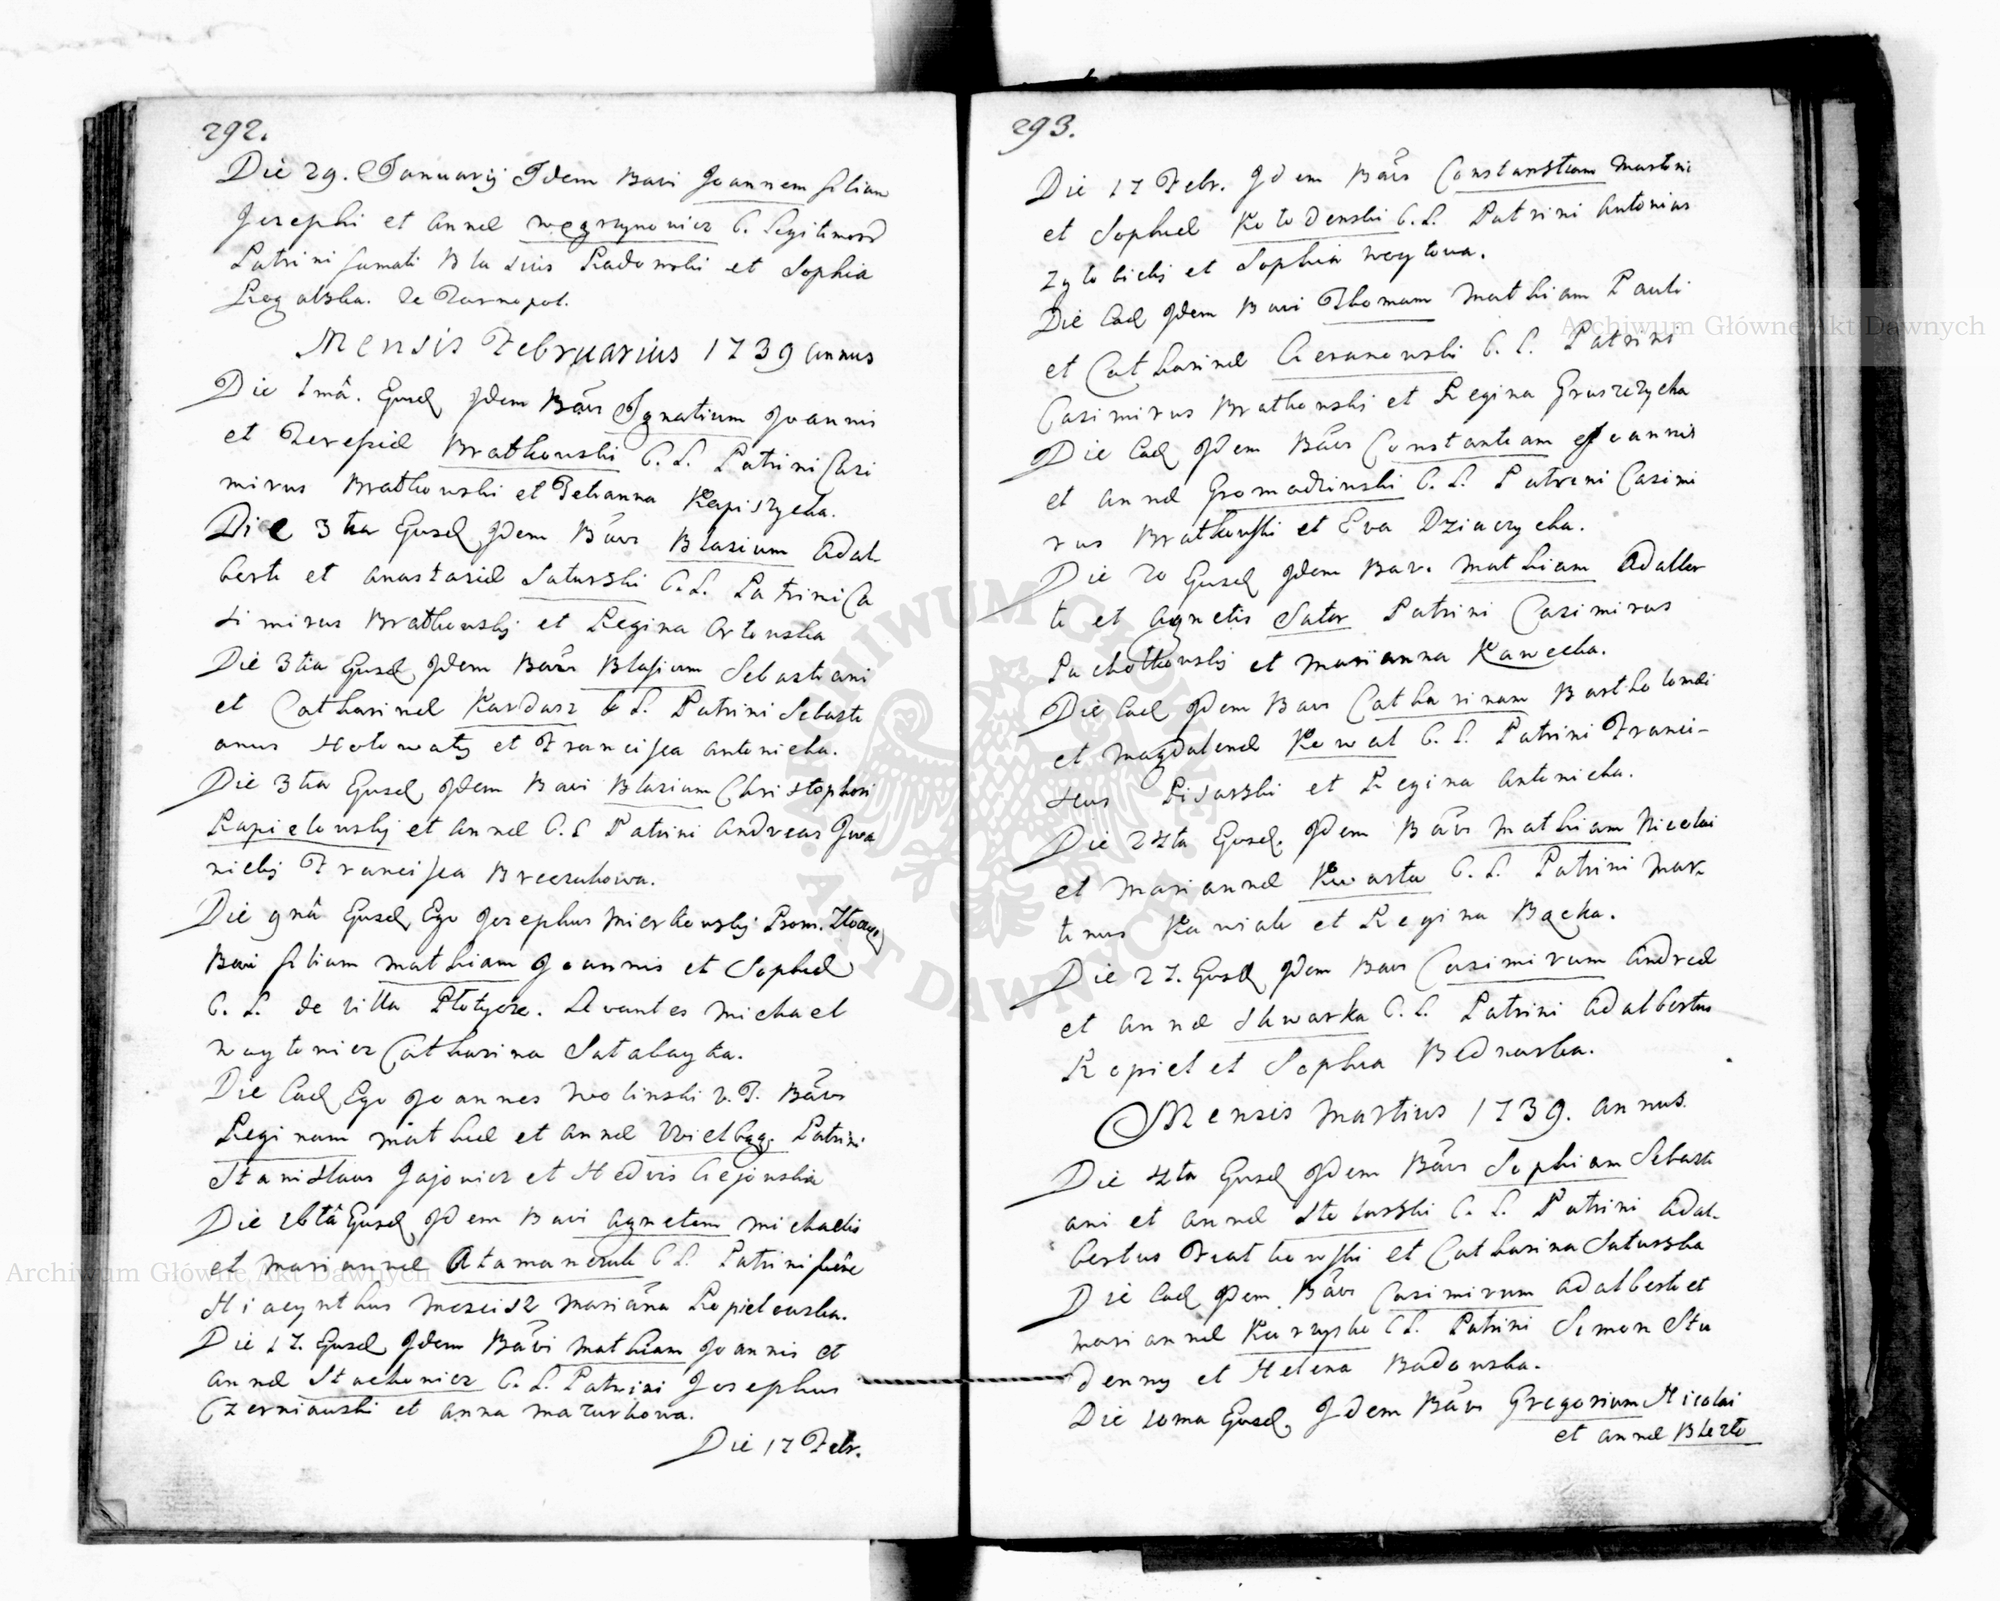 292.
Die 29. Januarij Idem Bavi Joannem filium
Josephi et Annæ Węgrzynowicz C. Legitimorum
Patrini famati Blasius Radowski et Sophia
Rogalska. de Tarnopol.
Mensis Februarius 1739 annus
Die 1mâ. Ejusd Idem Bavi Ignatium Joannis
et Teresiæ Bratkowski C. L. Patrini Casi
mirus Bratkowski et Tetianna Kapiszycha.
Die 3tia Ejusd Idem Bavi Blasium Adal
berti et Anastasiæ Saturski C. L. Patrini Ca
simirus Bratkowskij et Regina Artowska
Die 3tia Ejusd Idem Bavi Blasium Sebastiani
et Catharinæ Kardasz C L. Patrini Sebasti
anus Hołowaty et Francisca Antonicha.
Die 3tia Ejusd Idem Bavi Blasium Christophori
Kapielowskij et Annæ C. L Patrini Andreas Iwa
nickij Francisca Breczukowa.
Die 9nâ Ejusd Ego Josephus Mierkowskij Prom.
Bavi filium Mathiam Joannis et Sophiæ
C. L. de villa Płotycze. Levantes Michael
Woytowicz Catharina Satabayka.
Die Ead Ego Joannes Wolinski V. T. Bavi
Reginam Mathiæ et Annæ Patrini
Stanislaus Jajowicz et Hedvis
Die 16tâ Ejusd Idem Bavi Agnetem Michaelis
et Mariannæ Atamanczuk C L. Patrini
Hiacynthus Marianna Kopielowska.
Die 17. Ejusd Idem Bavi Mathiam Joannis et
Annæ Stachowicz C. L. Patrini Josephus
Czerniawski et Anna Mazurkowa.
Die 17 Febr.
293.
Die 17 Febr. Idem Bavi Constantiam Martini
et Sophiæ Kołodenski C. L. Patrini Antonius
Zytobickij et Sophia Woytowa.
Die Ead Idem Bavi Thomam Mathiam Pauli
et Catharinæ Ceranowski C. L. Patrini
Casimirus Bratkowskij et Regina Gruszczycha
Die Ead Idem Bavi Constantiam Joannis
et Annæ Gromadzinski C. L. Patrini Casimi
rus Bratkowski et Eva
Die 20 Ejusd Idem Bav. Mathiam Adalber
ti et Agnetis Sator Patrini Casimirus
Pachołkowskij et Marianna Kawecka.
Die Ead Idem Bavi Catharinam Bartholomæi
et Magdalenæ Kowal C. L. Patrini Franci-
scus Pisarski et Regina Antonicha.
Die 24ta Ejusd. Idem Bavi Mathiam Nicolai
et Mariannæ Kwarta C. L. Patrini Mar-
tinus et Regina Bącka.
Die 27. Ejusd Idem Bavi Casimirum Andreæ
et Annæ Skwarka C. L. Patrini Adalbertus
Kopiel et Sophia Bednarka.
Mensis Martius 1739. annus.
Die 4ta Ejusd Idem Bavi Sophiam Sebasti
ani et Annæ C. L. Patrini Adal-
bertus et Catharina Saturska
Die Ead Idem Bavi Casimirum Adalberti et
Mariannæ C L. Patrini Simon Stu
denny et Helena Badowska.
Die 10ma Ejusd. Idem Bavi Gregorium Nicolai
et Annæ
Archiwum Główne Akt Dawnych
Archiwum Główne Akt Dawnych
ARCHIWUM GŁÓWNE
AKT DAWNYCH